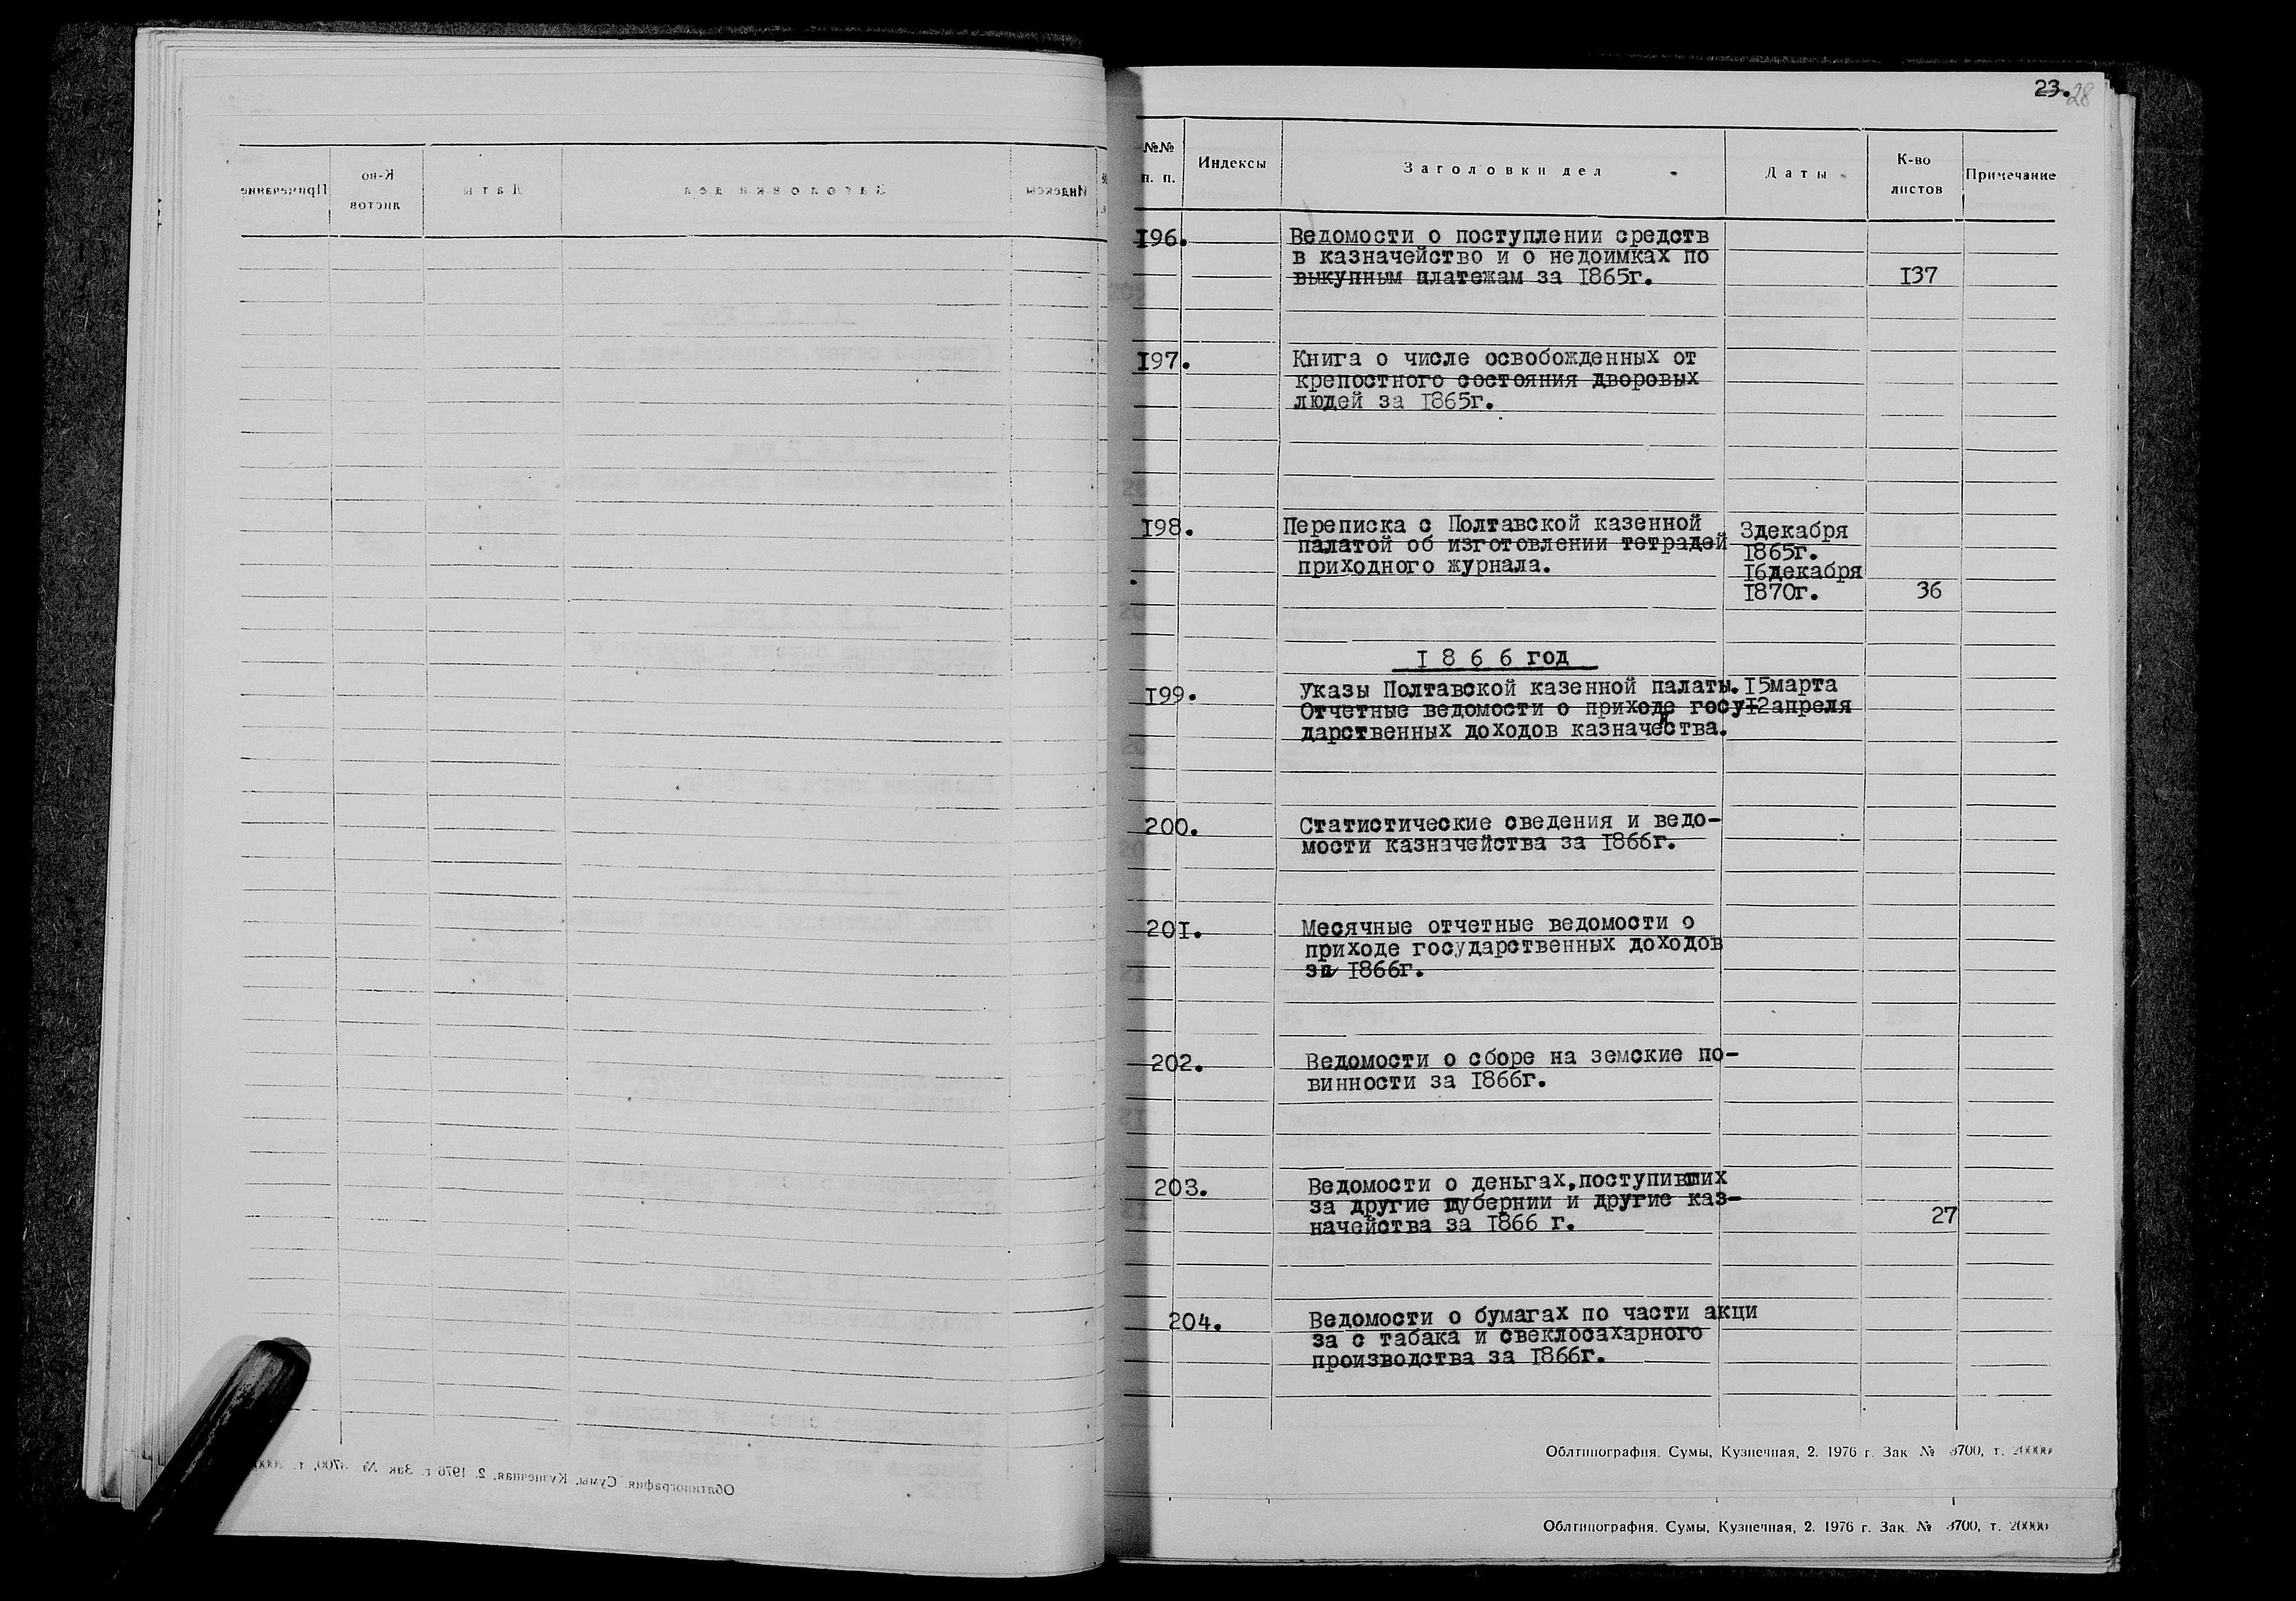 23. 28
№№ п. п. Индексы Заголовки дел Даты К-во листов Примечание
196. Ведомости о поступлении средств
в казначейство и о недоимках по
выкупным платежам за 1865г. 137
197. Книга о числе освобожденных от
крепостного состояния дворовых
людей за 1865г.
198. Переписка с Полтавской казенной 3декабря
палатой об изготовлении тетрадей 1865г.
приходного журнала. 16декабря
1870г. 36
1 8 6 6 год
199. Указы Полтавской казенной палаты. 15марта
Отчетные ведомости о приходе госу 12апреля
дарственных доходов казначейства.
200. Статистические сведения и ведо-
мости казначейства за 1866г.
201. Месячные отчетные ведомости о
приходе государственных доходов
за 1866г.
202. Ведомости о сборе на земские по-
винности за 1866г.
203. Ведомости о деньгах,поступивших
за другие губернии и другие каз-
начейства за 1866 г. 27
204. Ведомости о бумагах по части акци
за с табака и свеклосахарного
производства за 1866г.
Облтипография. Сумы, Кузнечная, 2. 1976 г. Зак № 8700, т. 20000
Облтипография. Сумы, Кузнечная, 2. 1976 г. Зак. № 8700, т. 20000